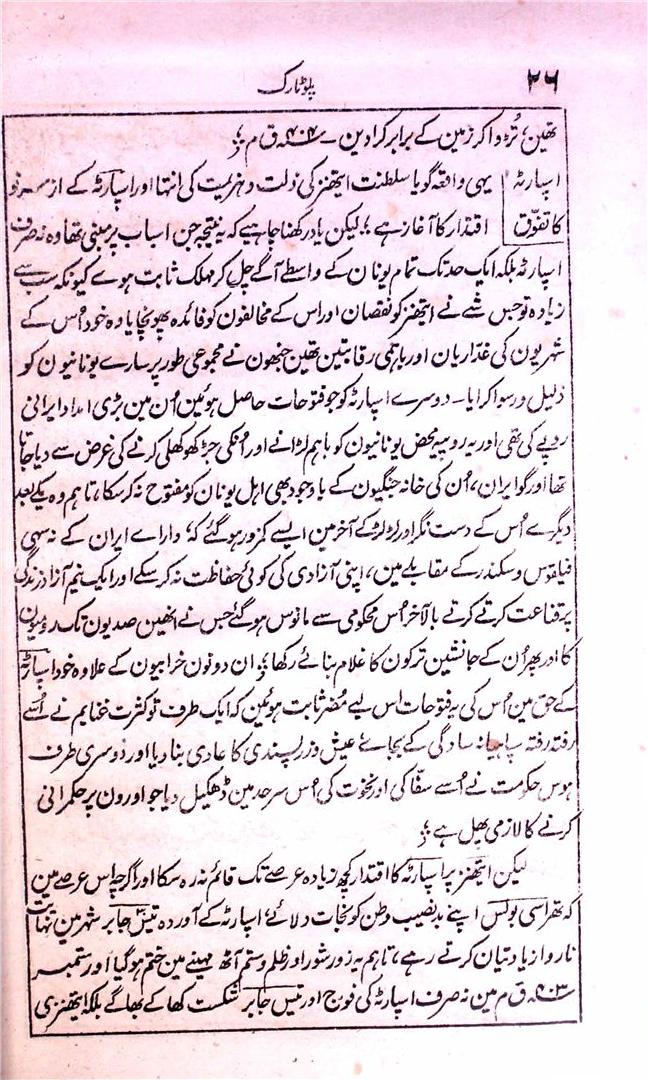 ۲۶
پلوٹارک
تھین، تُڑوا کر زمین کے برابر کرا دین ۔ ۴۰۴ ق م ؛
اسپارٹہ
کا تفوّق
یہی واقعہ گویا سلطنت ایتھنز کی ذلت و ہزیمت کی انتہا اور اسپارٹہ کے از سر نو
اقتدار کا آغاز ہے ؛ لیکن یاد رکھنا چاہیے کہ یہ نتیجہ جن اسباب پر مبنی تھا وہ نہ صرف
اسپارٹہ بلکہ ایک حد تک تمام یونان کے واسطے آگے چل کر مہلک ثابت ہوے کیونکہ سب سے
زیادہ تو جس شے نے ایتھنز کو نقصان اور اس کے مخالفون کو فائدہ پہونچایا وہ خود اُس کے
شہریون کی غدّاریان اور باہمی رقابتین تھین جنھون نے مجموعی طور پر سارے یونانیون کو
ذلیل و رسوا کرایا ۔ دوسرے اسپارٹہ کو جو فتوحات حاصل ہوئین اُن مین بڑی امداد ایرانی
روپے کی تھی اور یہ روپیہ محض یونانیون کو باہم لڑانے اور اُنکی جڑ کھوکھلی کرنے کی غرض سے دیا جاتا
تھا اور گو ایران، اُن کی خانہ جنگیون کے باوجود بھی اہل یونان کو مفتوح نہ کر سکا، تاہم وہ یکے بعد
دیگرے اُس کے دست نگر اور لڑ لڑ کے آخر مین ایسے کمزور ہو گئے کہ، داراے ایران کے نہ سہی
فیلقوس و سکندر کے مقابلے مین، اپنی آزادی کی کوئی حفاظت نہ کر سکے اور ایک نیم آزاد زندگی
پر قناعت کرتے کرتے بالآخر اُس محکومی سے مانوس ہو گئے جس نے انھین صدیون تک رومیون
کا اور پھر اُن کے جانشین ترکون کا غلام بنائے رکھا ؛ ان دونون خرابیون کے علاوہ خود اسپارٹہ
کے حق مین اُس کی یہ فتوحات اس لیے مُضر ثابت ہوئین کہ ایک طرف تو کثرت غنایم نے اُسے
رفتہ رفتہ سپاہیانہ سادگی کے بجاے عیش و زر پسندی کا عادی بنا دیا اور دوسری طرف
ہوس حکومت نے اُسے سفّاکی اور نخوت کی اُس سرحد مین ڈھکیل دیا جو اورون پر حکمرانی
کرنے کا لازمی پھل ہے ؛
لیکن ایتھنز پر اسپارٹہ کا اقتدار کچھ زیادہ عرصے تک قائم نہ رہ سکا اور اگرچہ اس عرصے مین
کہ تھراسی بولس اپنے بد نصیب وطن کو نجات دلائے، اسپارٹہ کے آوردہ تیس جابر شہر مین نہایت
ناروا زیادتیان کرتے رہے، تاہم یہ زور شور اور ظلم و ستم آٹھ مہینے مین ختم ہو گیا اور ستمبر
۴۰۳ ق م مین نہ صرف اسپارٹہ کی فوج اور تیس جابر شکست کھا کے بھاگے بلکہ ایتھنز ی